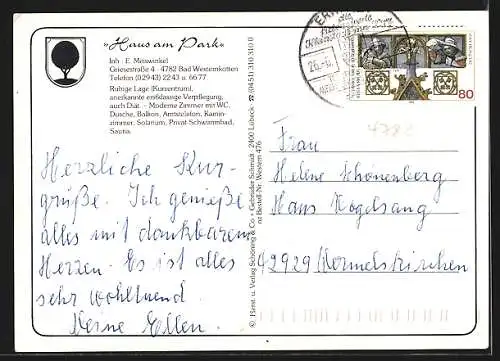 »Haus am Park«
Inh.: E. Meiswinkel
Griesestraße 4 · 4782 Bad Westernkotten
Telefon (02943) 2243 u. 6677
Ruhige Lage (Kurzentrum),
anerkannte erstklassige Verpflegung,
auch Diät. – Moderne Zimmer mit WC,
Dusche, Balkon, Amtstelefon, Kamin-
zimmer, Solarium, Privat-Schwimmbad,
Sauna.
Herzliche Kur-
grüße. Ich genieße
alles mit dankbarem
Herzen. Es ist alles
sehr wohltuend.
Deine Ellen.
© Herst. u. Verlag Schöning & Co + Gebrüder Schmidt · 2400 Lübeck · ☎ (0451) 310 310
Bestell-Nr. Western 476
80
4782
Frau
Helene Schönenberg
Haus Vogelsang
42929 Wermelskirchen